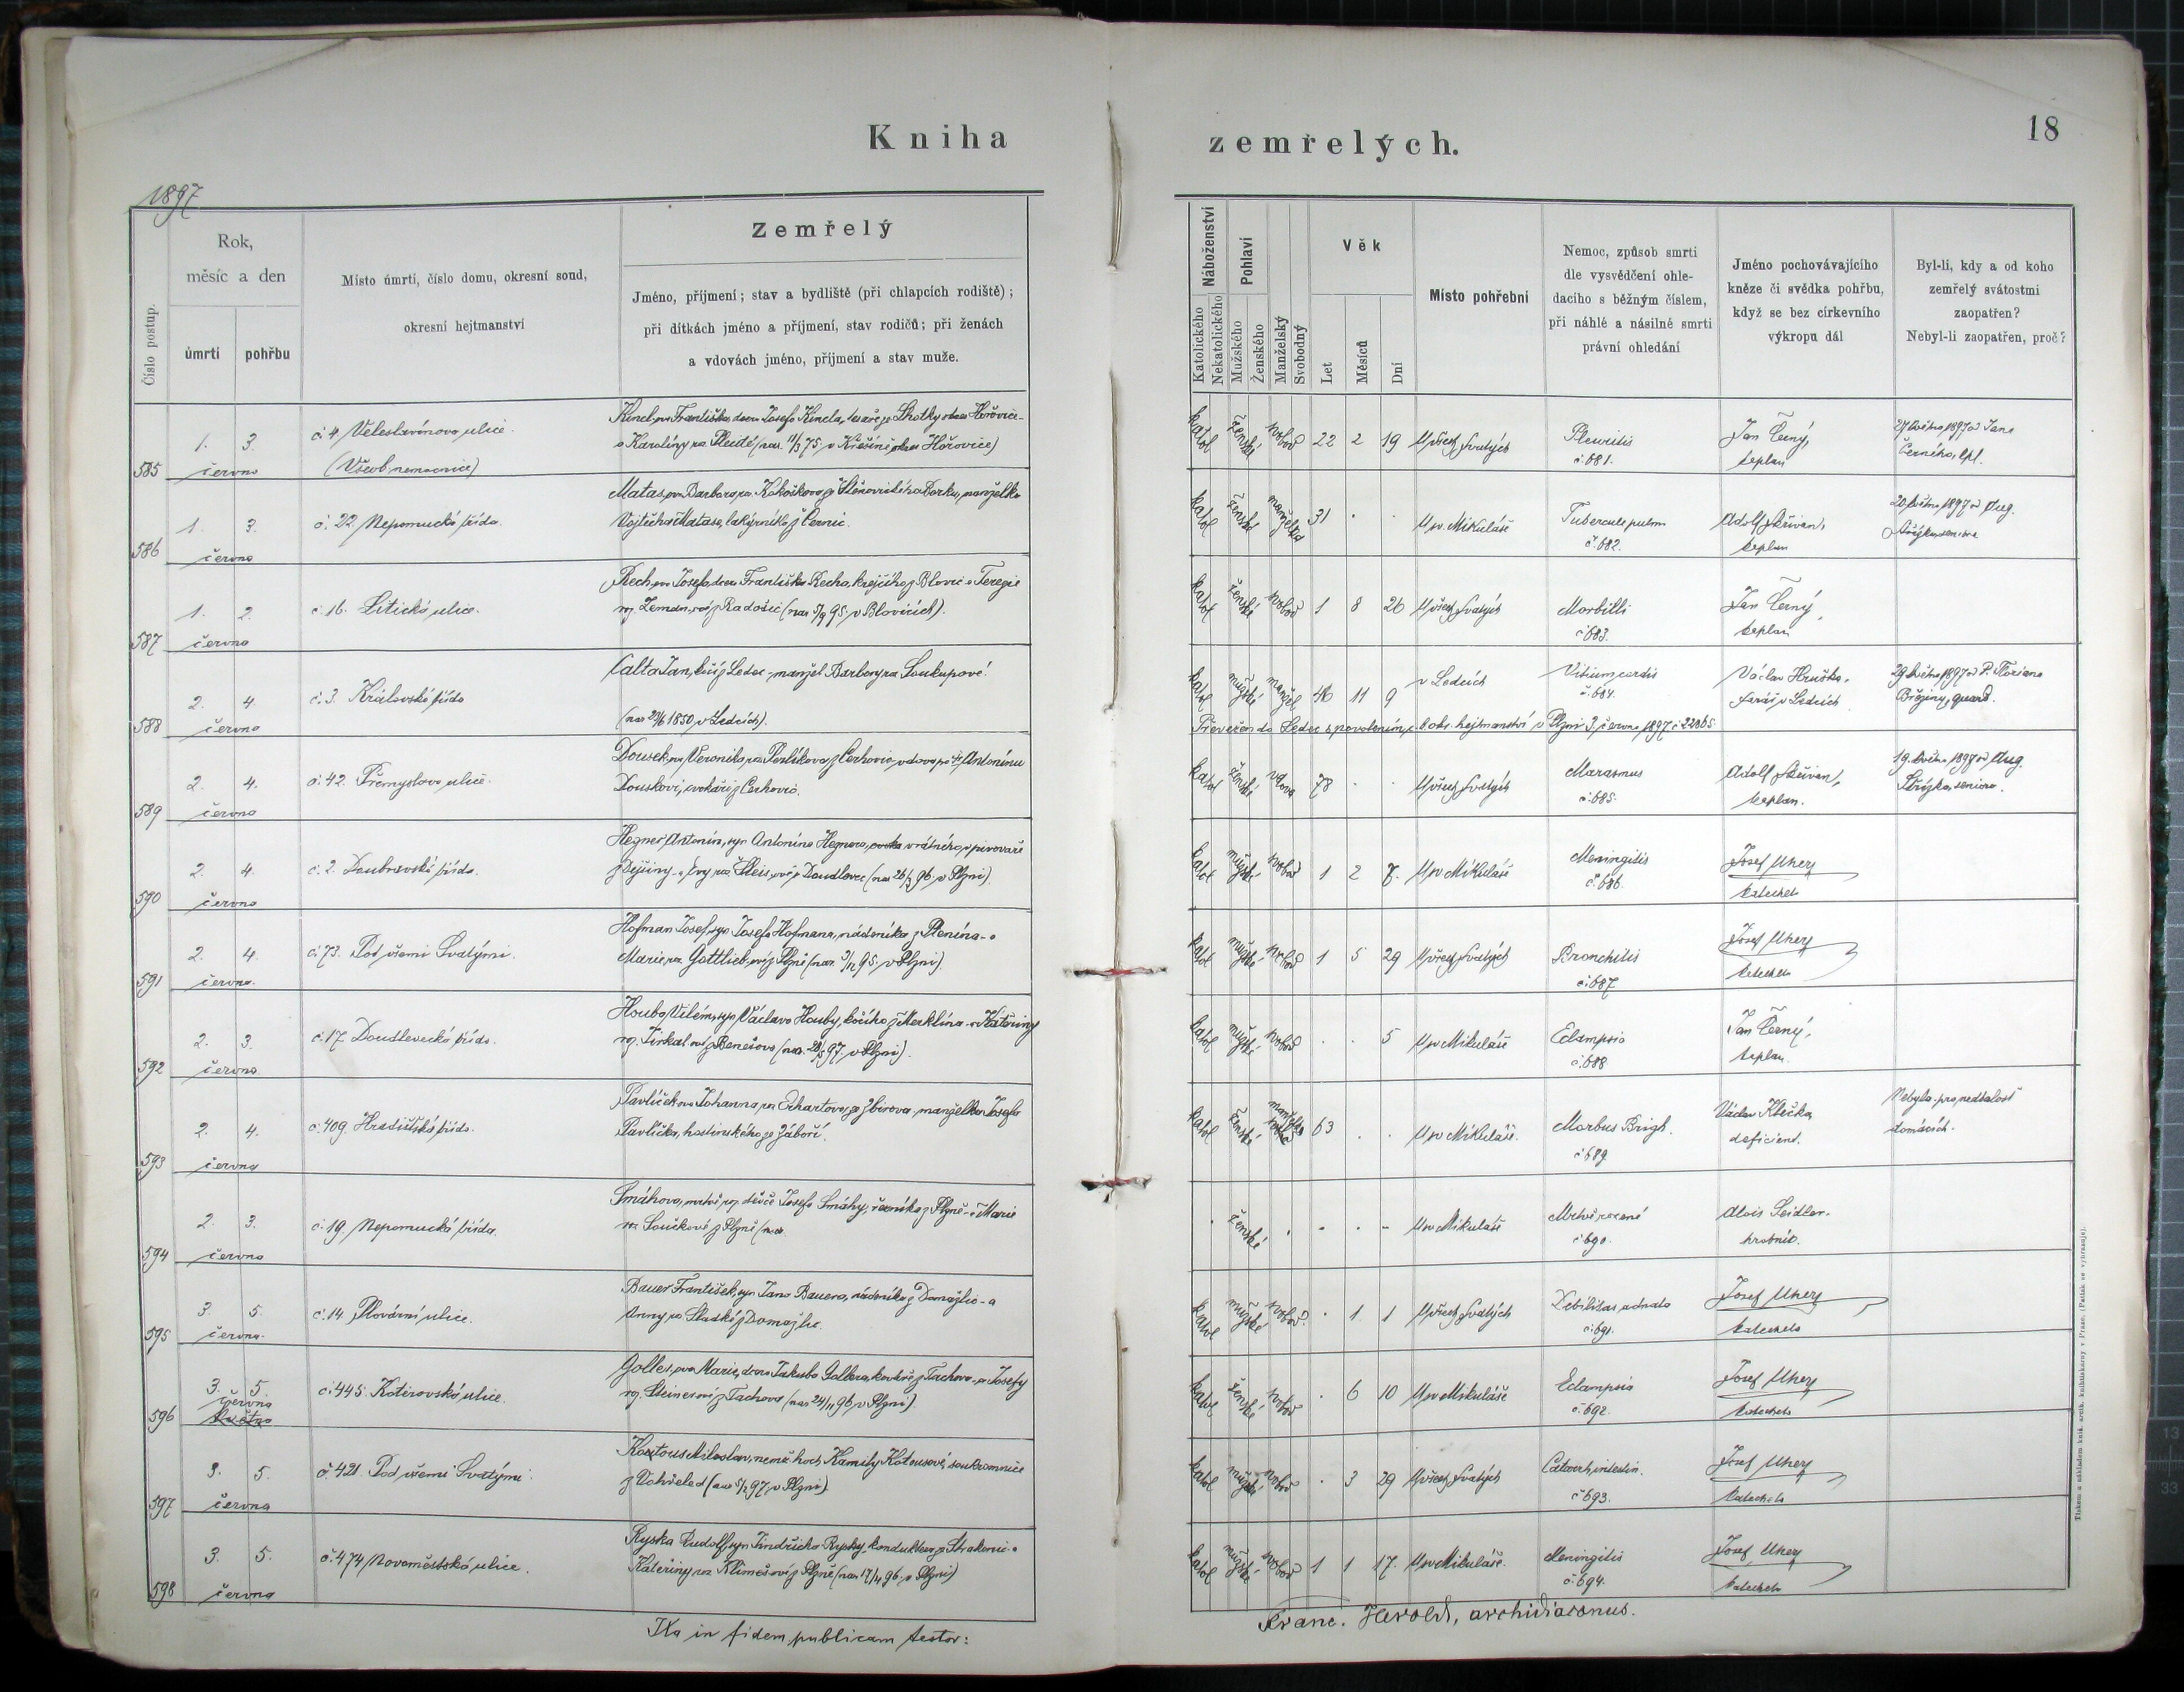 Kniha zemřelých.
18
1897
Číslo postup.
Rok,
měsíc a den
úmrtí
pohřbu
Místo úmrtí, číslo domu, okresní soud,
okresní hejtmanství
Zemřelý
Jméno, příjmení; stav a bydliště (při chlapcích rodiště);
při dítkách jméno a příjmení, stav rodičů; při ženách
a vdovách jméno, příjmení a stav muže.
Náboženství
Katolického
Nekatolického
Pohlaví
Mužského
Ženského
Manželský
Svobodný
Věk
Let
Měsíců
Dní
Místo pohřební
Nemoc, způsob smrti
dle vysvědčení ohle-
dacího s běžným číslem,
při náhlé a násilné smrti
právní ohledání
Jméno pochovávajícího
kněze či svědka pohřbu,
když se bez církevního
výkropu dál
Byl-li, kdy a od koho
zemřelý svátostmi
zaopatřen?
Nebyl-li zaopatřen, proč?
585
1. 3.
června
č. 4. Veleslavínova ulice.
(Všeob. nemocnice)
Františka, dcera Josefa Kincla,
a Karolíny
katol ženské svobod 22 2 19 U všech Svatých
Pleuritis
č. 681.
Jan Černý,
kaplan
27 května 1897 od Jana
Černého, kpl.
586
1. 3.
června
č. 22. Nepomucká třída.
Barbora manželka
Vojtěcha Matase, lakýrníka z Černic.
katol ženské manželka 31 . . U sv. Mikuláše
Tubercul. pulm.
č. 682.
Adolf Skřivan,
kaplan
20. května 1897 od Aug.
587
1. 2.
června
č. 16. Litická ulice.
Josefa, dcera Františka Recha, krejčího z Blovic a Terezie
roz. Zeman (nar. 5/9 95. v Blovicích).
katol ženské svobod 1 8 26 U všech Svatých
Morbilli
č. 683.
Jan Černý,
kaplan
588
2. 4.
června
č. 3. Královská třída
Calta Jan, manžel Barbory roz. Soukupové.
1850, v Ledcích).
katol mužské manžel 46 11 9 v Ledcích
Vitium cordis
č. 684.
Václav Hruška,
farář v Ledcích
29. května 1897 od P. Floriana
quard.
Převezen do Ledec s povolením c. k. okr. hejtmanství v Plzni 3. června 1897 č. 22865.
589
2. 4.
června
č. 42. Přemyslova ulice.
Veronika vdova po † Antonínu
Douskovi, z Cerhovic.
katol ženské vdova 78 . . U všech Svatých
Marasmus
č. 685.
Adolf Skřivan,
kaplan.
19. května 1897 od Aug.
seniora.
590
2. 4.
června
č. 2. Doubravská třída.
Hegner Antonín, syn Antonína Hegnera, vrátného v pivovaře
z Doudlevec (nar. 26/3 96. v Plzni)
katol mužské svobod 1 2 7. U sv. Mikuláše
Meningitis
č. 686.
Josef Uherz
katecheta
591
2. 4.
června.
č. 73. Pod všemi Svatými.
Hofman Josef, syn Josefa Hofmana, nádeníka z Plenína a
Marie roz. Gottlieb z Plzně (nar. 3/12 95. v Plzni).
katol mužské svobod 1 5 29 U všech Svatých
Bronchitis
č. 687
Josef Uherz
katecheta
592
2. 3.
června
č. 17. Doudlevecká třída.
Houba Vilém, syn Václava Houby, kočího z Merklína a Kateřiny
z Benešova (nar. 28/5 97. v Plzni).
katol mužské svobod . . 5 U sv. Mikuláše
Eclampsia
č. 688
Jan Černý,
kaplan.
593
2. 4.
června
č. 409. Hradišťská třída.
Pavlíčková Johanna roz. Erhartova ze Zbirova manželka Josefa
Pavlíčka, hostinského ze Záboří.
katol ženské manželka 63 . . U sv. Mikuláše.
Morbus Brigh.
č. 689
Václav Klička,
deficient.
Nebyla, pro nedbalost
domácích.
594
2. 3.
června
č. 19. Nepomucká třída.
Smáhova, mrtvě roz. děvče Josefa Smáhy, řezníka z Plzně a Marie
roz. Součkové z Plzně (nar.
. ženské . . . . U sv. Mikuláše
Mrtvě rozené
č. 690.
Alois Seidler.
hrobník.
595
3. 5.
června.
č. 14. Plovární ulice.
Bauer František, syn Jana Bauera, nádeníka z Domažlic a
Anny roz. Sladké z Domažlic.
katol mužské svobod. . 1 1 U všech Svatých
Debilitas adnata
č. 691.
Josef Uherz
katecheta
596
3. 5.
června
května
č. 445. Koterovská ulice.
Marie, dcera Jakuba Gollera, z Tachova a Josefy
roz. Steinerové z Tachova (nar. 24/11 96, v Plzni)
katol ženské svobod . 6 10 U sv. Mikuláše
Eclampsia
č. 692.
Josef Uherz
katecheta
597
3. 5.
června
č. 421. Pod všemi Svatými.
Miloslav, nemanž. hoch Kamily Kotousové, soukromnice
(nar. 5/2 97, v Plzni)
katol mužské svobod . 3 29 U všech Svatých
Catarrh. intestin.
č. 693.
Josef Uherz
katecheta
598
3. 5.
června
č. 474 Novoměstská ulice.
Ryska Rudolf, syn Jindřicha Rysky, konduktera ze Strakonic a
Kateřiny roz. Klimešové z Plzně (nar. 17/4 96, v Plzni)
katol mužské svobod 1 1 17. U sv. Mikuláše.
Meningitis
č. 694.
Josef Uherz
katecheta
Ita in fidem publicam testor:
Franc. Herold, archidiaconus.